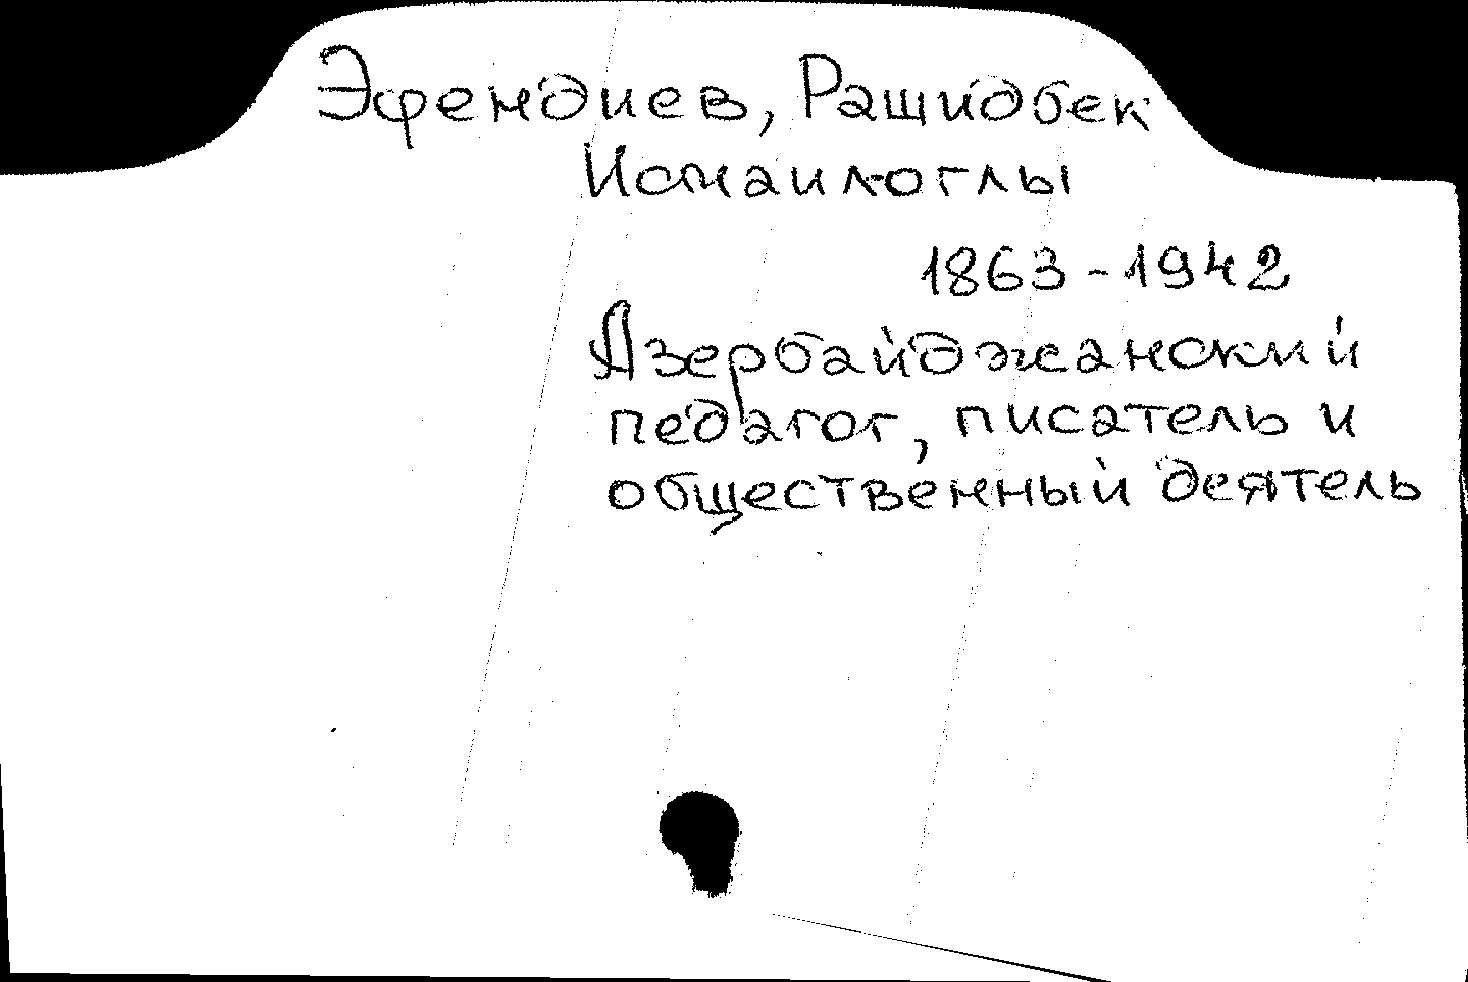 Эфендиев, Рашидбек
Исмаил-оглы
1863-1942
Азербайджанский
педагог, писатель и
общественный деятель